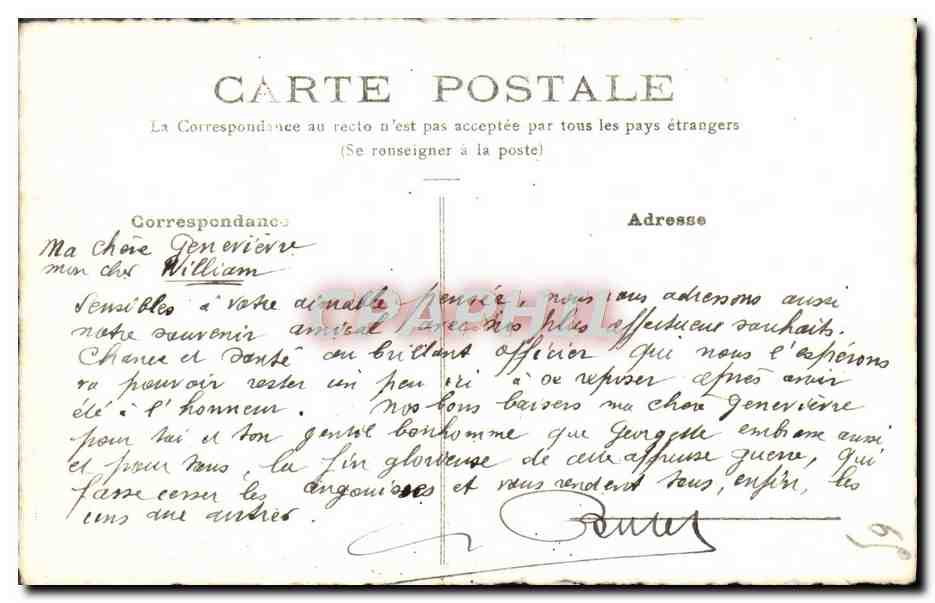 CARTE POSTALE
La Correspondance au recto n'est pas acceptée par tous les pays étrangers
(Se renseigner à la poste)
Correspondance
Adresse
Ma chère Genevièvre
mon cher William
Sensibles à votre aimable pensée, nous vous adressons aussi
notre souvenir amical avec nos plus affectueux souhaits.
Chance et santé au brillant officier qui nous l'espérons
va pouvoir rester un peu ici à se reposer après avoir
été à l'honneur. Nos bons baisers ma chère Genevièvre
pour toi et ton gentil bonhomme que Georgette embrasse aussi
et pour vous, la fin glorieuse de cette affreuse guerre, qui
fasse cesser les angoisses et vous rendent tous, enfin, les
uns aux autres.
CPAPHIL